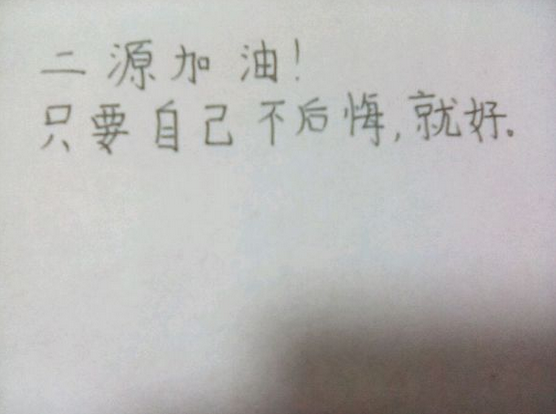 二源加油!
只要自己不后悔,就好。